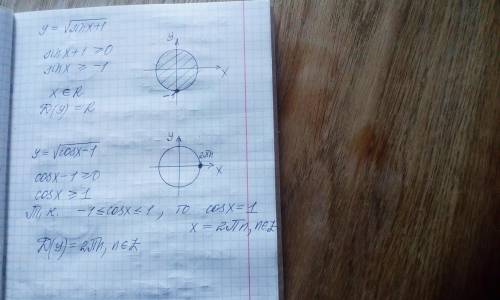 y = √sinx+1
sinx+1 ≥ 0
sinx ≥ -1
x ∈ R
D(y) = R
y
x
-1
y = √cosx-1
cosx-1 ≥ 0
cosx ≥ 1
Т.к. -1 ≤ cosx ≤ 1, то cosx = 1
x = 2πn, n∈Z
D(y) = 2πn, n∈Z
y
2πn
x